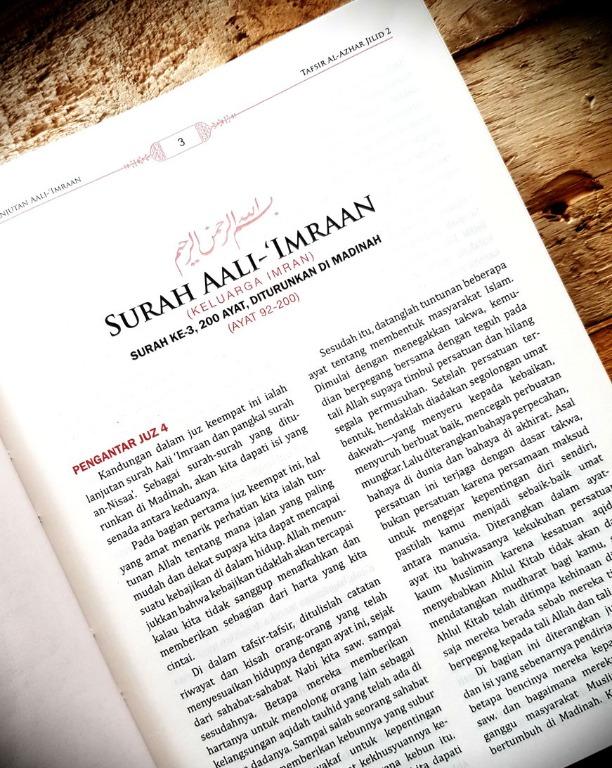 TAFSIR AL-AZHAR JILID 2
3
NJUTAN AALI-'IMRAAN
بسم الله الرحمن الرحيم
SURAH AALI-'IMRAAN
(KELUARGA IMRAN)
SURAH KE-3, 200 AYAT, DITURUNKAN DI MADINAH
(AYAT 92-200)
PENGANTAR JUZ 4
Kandungan dalam juz keempat ini ialah
lanjutan surah Aali 'Imraan dan pangkal surah
an-Nisaa'. Sebagai surah-surah yang ditu-
runkan di Madinah, akan kita dapati isi yang
senada antara keduanya.
Pada bagian pertama juz keempat ini, hal
yang amat menarik perhatian kita ialah tun-
tunan Allah tentang mana jalan yang paling
mudah dan dekat supaya kita dapat mencapai
suatu kebajikan di dalam hidup. Allah menun-
jukkan bahwa kebajikan tidaklah akan tercapai
kalau kita tidak sanggup menafkahkan dan
memberikan sebagian dari harta yang kita
cintai.
Di dalam tafsir-tafsir, ditulislah catatan
riwayat dan kisah orang-orang yang telah
menyesuaikan hidupnya dengan ayat ini, sejak
dari sahabat-sahabat Nabi kita saw. sampai
sesudahnya. Betapa mereka memberikan
hartanya untuk menolong orang lain sebagai
kelangsungan aqidah tauhid yang telah ada di
dadanya. Sampai salah seorang sahabat
memberikan kebunnya yang subur
wakaf untuk kepentingan
kekhusyuannya ke-
kebun itu.
dapati
Sesudah itu, datanglah tuntunan beberapa
ayat tentang membentuk masyarakat Islam.
Dimulai dengan menegakkan takwa, kemu-
dian berpegang bersama dengan teguh pada
tali Allah supaya timbul persatuan dan hilang
segala permusuhan. Setelah persatuan ter-
bentuk, hendaklah diadakan segolongan umat
dakwah—yang menyeru kepada kebaikan,
menyuruh berbuat baik, mencegah perbuatan
mungkar. Lalu diterangkan bahaya perpecahan,
bahaya di dunia dan bahaya di akhirat. Asal
persatuan ini terjaga dengan dasar takwa,
bukan persatuan karena persamaan maksud
untuk mengejar kepentingan diri sendiri,
pastilah kamu menjadi sebaik-baik umat
antara manusia. Diterangkan dalam ayat
ayat itu bahwasanya kekukuhan persatu
kaum Muslimin karena kesatuan aqid
menyebabkan Ahlul Kitab tidak akan
mendatangkan mudharat bagi kamu,
Ahlul Kitab telah ditimpa kehinaan
saja mereka berada sebab mereka
berpegang kepada tali Allah dan tal
Di bagian ini diterangkan
dan isi yang sebenarnya pendiri
betapa bencinya mereka kep
saw. dan bagaimana mere
ganggu masyarakat Musl
bertumbuh di Madinah.